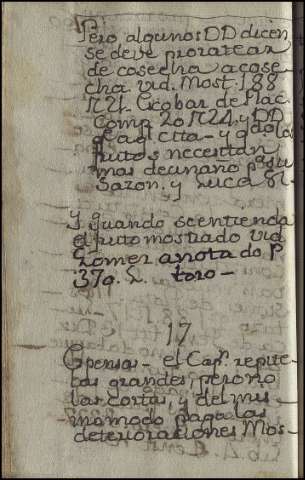 Pero algunos DD dicen
se deve prorratear
de cosecha a cose
cha vid. Most. 188
n. 21. Escobar de Ratc.
Comp. 20 n. 24. y DD
q.e alli cita - y q.do los
frutos necesitan
mas de un año p.a su
Sazon. y Luca 81.
Y quando se entienda
el fruto mostrado vid
Gomez anotado P.
370. L. toro -
17
Expensas - el Cap.n repite
las grandes, pero no
las cortas, y del mis
mo modo paga las
deterioraciones Mos-